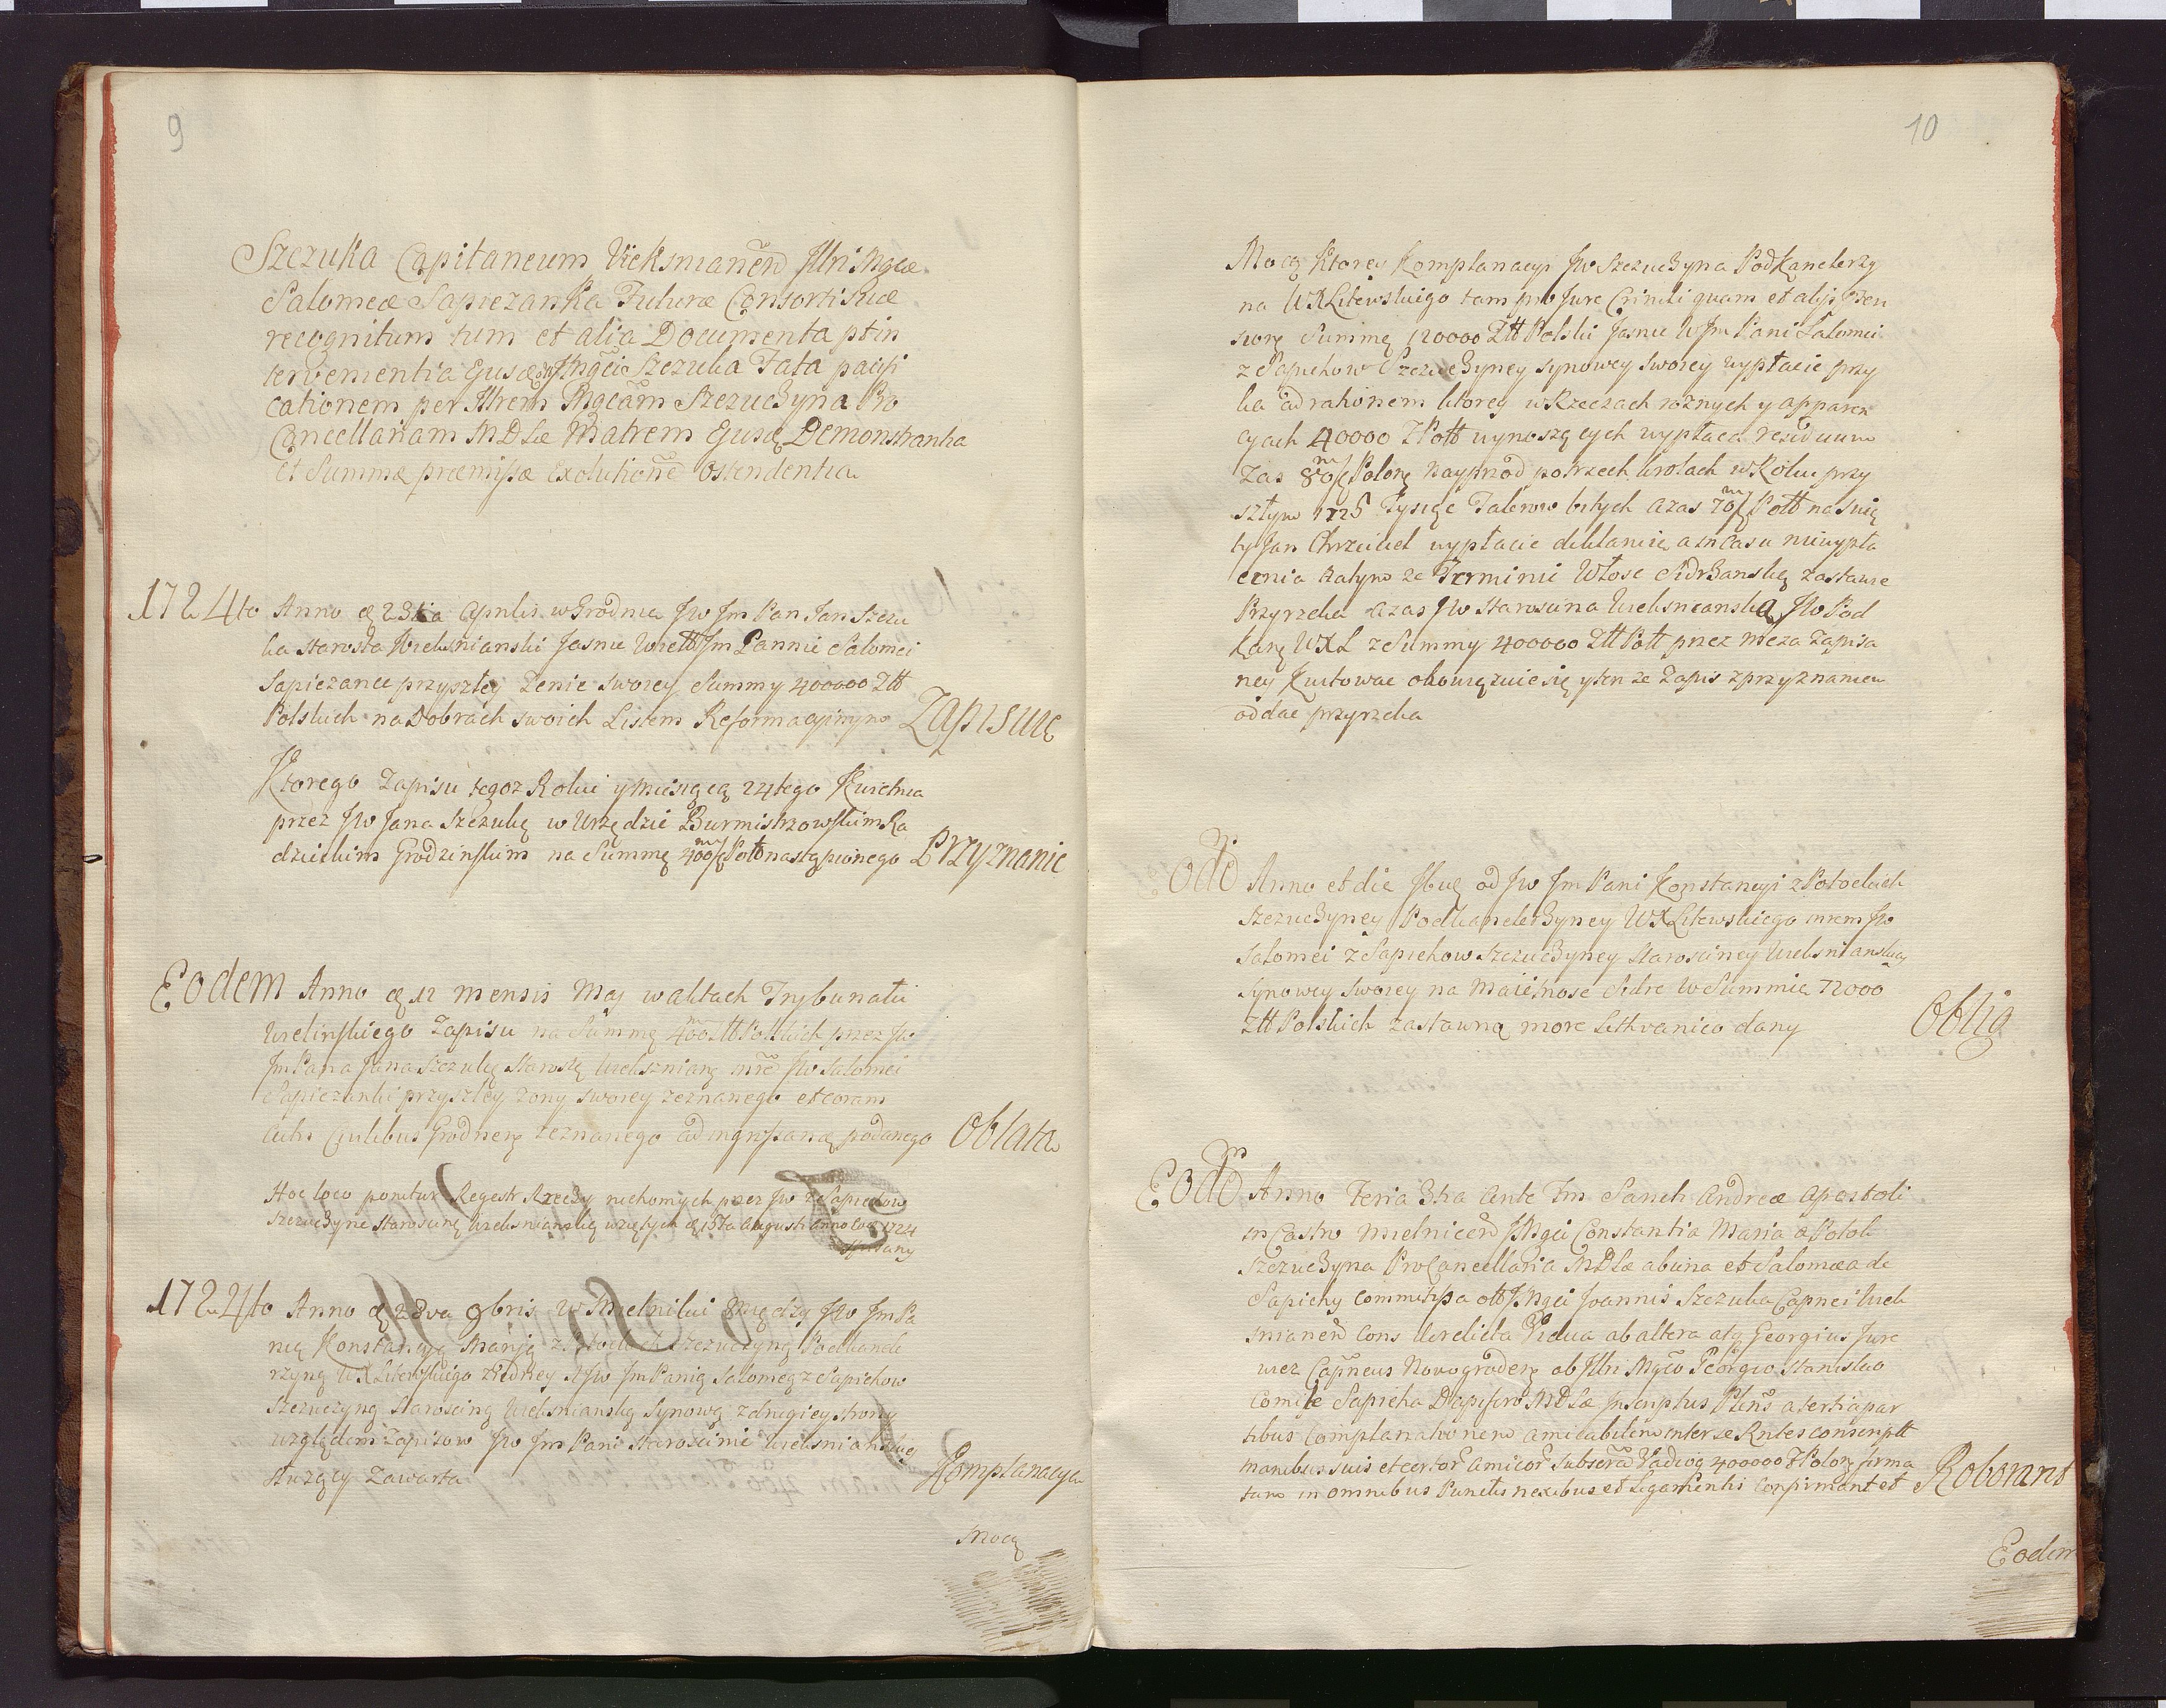 9
Szczuka Capitaneum Wieksnianen Illri Mgcæ
Salomeæ Sapiezanka Futuræ Consorti suæ
recognitum tum et alia Documenta ptin
Szczuka Fata pacifi
cationem per Illrem Mgcam Szczuczyna Pro
Cancellariam MDLæ Matrem Demonstrantia
et Summæ præmissæ exolutione ostendentia
1724to Anno Aprilis w Grodnie JW Jm Pan Jan Szczu
ka Starosta Wieksnianski Jasnie Wiel Jm Pannie Salomei
Sapiezance przyszłey Zenie swoiey Summy 400000 Złł
Polskich na Dobrach swoich Listem Reformacyinym Zapisuię
Ktorego Zapisu tegoz Roku y Miesiąca 24tego Kwietnia
przez JW Jana Szczukę w Urzędzie Burmistrzowskim Ra
dzieckim Grodzinskim na Summę 400/m Poll nastąpionego Przyznanie
Eodem Anno 12 mensis Maj w aktach Trybunału
Wielinskiego Zapisu na Summę 400/m Złł Polskich przez JW
Jm Pana Jana Szczukę Starostę JW Salomei
Sapiezanki przyszłey zony swoiey zeznanego et coram
Actis zeznanego podanego Oblata
Hoc loco ponitur Regestr Rzeczy ruchomych przez JW z Sapiehow
Szczuczynę Starościnę Wieksnianską wziętych 15ta Augusti Anno 1724
Spisany
1724to Anno 9bris w Mielniku Między JW Jm Pa
nią Konstancyą Maryą z Potockich Szczuczyną Podkancle
rzyną WXLitewskiego z iedney A JW Jm Panią Salomeą z Sapiehow
Szczuczyną Starosciną Wieksnianską Synową z drugiey strony
względem Zapisow JW Jm Pani Starościnie Wieksnianskiey
służący Zawarta Komplanacya
Mocą
10
Mocą Ktorey Komplanacyi JW Szczuczyna Podkanclerzy
na WXLitewskiego tam pro Jure quam et alijs
Summę 120000 Złł Polski Jasnie W Jm Pani Salomei
z Sapiehow Szczuczyney Synowey Swoiey wypłacic przy
ka ad rationem ktorey w Rzeczach roznych y apparen
cyach 40000 Złł Poll wynoszących wypłaca residuum
Zas 80/m Polon Nayprzod po trzech Krolach w Roku przy
szłym 1725 Tysiąc Talerow bitych a zas 70/m Poll na Swię
ty Jan Chrzciciel wypłacic deklaruie a in Casu niewypła
cenia na tym ze Terminie Włosc Sidrzanską zastawic
Przyrzeka a zas JW Starościna Wieksnianska JW Pod
Kanc WXL z Summy 400000 Złł Poll przez Męza Zapisa
ney Kwitowac obowięzuie się y ten ze Zapis z przyznaniem
oddac przyrzeka
Eode Anno et die Obug od JW Jm Pani Konstancyi z Potockich
Szczuczyney Podkanclerzyney WXLitewskiego JW
Salomei z Sapiehow Szczuczyney Starościney Wieksnianskiey
Synowey Swoiey na Maiętnosc Sidre w Summie 72000
Złł Polskich zastawną more Lithvanico dany Oblig
Eode Anno Feria 3tia Ante Fm Sancti Andreæ Apostoli
in Castro Mielnicen JMgci Constantia Maria a Potok
Szczuczyna ProCancellaria MDLæ ab una et Salomea de
Sapiehy Joannis Szczuka Capnei Wiek
snianen Cons Derelicta Vidua ab altera Georgius Jure
wicz Capneus Novogroden ab Illri Mgco Georgio Stanislao
Comite Sapieha Dapifero MDLæ Inscriptus Plens a tertia par
tibus Complanationem amicabilem inter se Rntes conscript
manibus suis et certor Amicor subscr Vadiog 400000 Polon firma
tam in omnibus Punctis nexibus et Ligamentis Confirmant et Roborant
Eodem